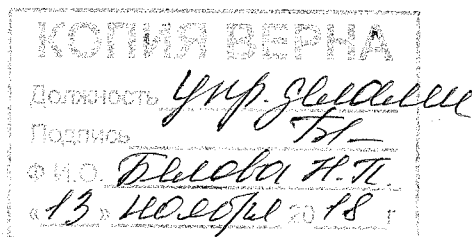 КОПИЯ ВЕРНА
Должность упр. делами
Подпись
Ф.И.О. Белова Н.П.
«13» ноября 2018 г